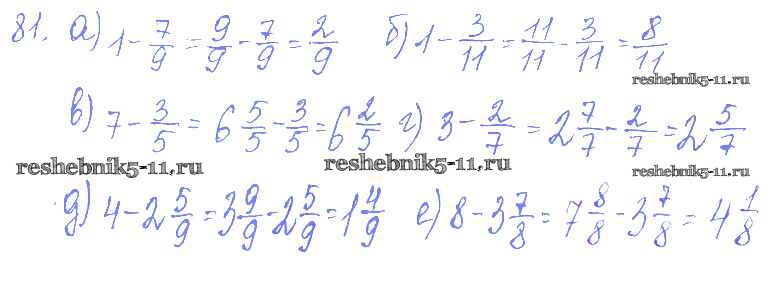 81. а) 1 - 7/9 = 9/9 - 7/9 = 2/9 б) 1 - 3/11 = 11/11 - 3/11 = 8/11
reshebnik5-11.ru
в) 7 - 3/5 = 6 5/5 - 3/5 = 6 2/5 г) 3 - 2/7 = 2 7/7 - 2/7 = 2 5/7
reshebnik5-11.ru reshebnik5-11.ru reshebnik5-11.ru
д) 4 - 2 5/9 = 3 9/9 - 2 5/9 = 1 4/9 е) 8 - 3 7/8 = 7 8/8 - 3 7/8 = 4 1/8